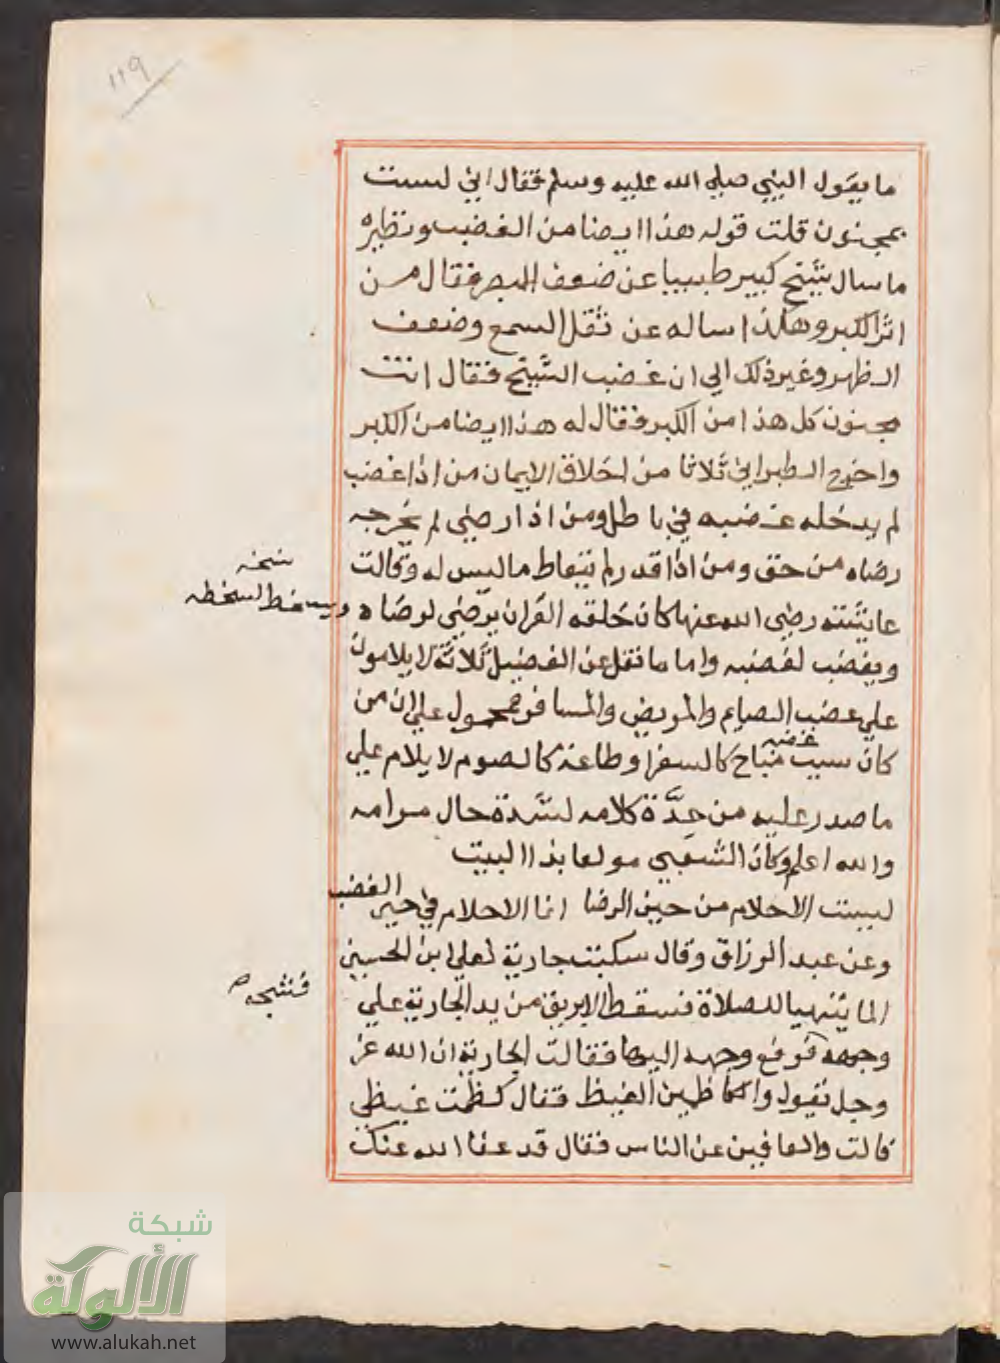 ١١٩
ما يقول النبي صلي الله عليه وسلم فقال اني لست
بمجنون قلت قوله هذا ايضا من الغضب ونظيره
ما سال شيخ كبير طبيبا عن ضعف البصر فقال من
اثر الكبر وهكذا ساله عن ثقل السمع وضعف
الظهر وغير ذلك الي ان غضب الشيخ فقال انت
مجنون كل هذا من الكبر فقال له هذا ايضا من الكبر
واخرج الطبراني ثلاثا من اخلاق الايمان من اذا غضب
لم يدخله غضبه في باطل ومن اذا رضي لم يخرجه
رضاه من حق ومن اذا قدر لم يتعاط ما ليس له وقالت
عايشة رضي الله عنها كان خلقه القران يرضي لرضاه
نسخه
ويسخط لسخطه
ويغضب لغضبه واما ما نقل عن الفضيل ثلاثة لا يلامون
علي غضب الصايم والمريض والمسافر محمول علي ان من
كان سبب غضبه مباح كالسفر او طاعة كالصوم لا يلام علي
ما صدر عليه من حدة كلامه لشدة حال مرامه
والله اعلم وكان الشعبي مولعا بهذا البيت
ليست الاحلام من حين الرضا انما الاحلام في حين الغضب
وعن عبد الرزاق وقال سكبت جارية لعلي ابن الحسين
الماء يتهيا للصلاة فسقط الابريق من يد الجارية علي
فشجه
وجهه فرفع وجهه اليها فقالت الجارية ان الله عز
وجل يقول والكاظمين الغيظ فقال كظمت غيظي
قالت والعافين عن الناس فقال قد عفا الله عنك
شبكة
الألوكة
www.alukah.net